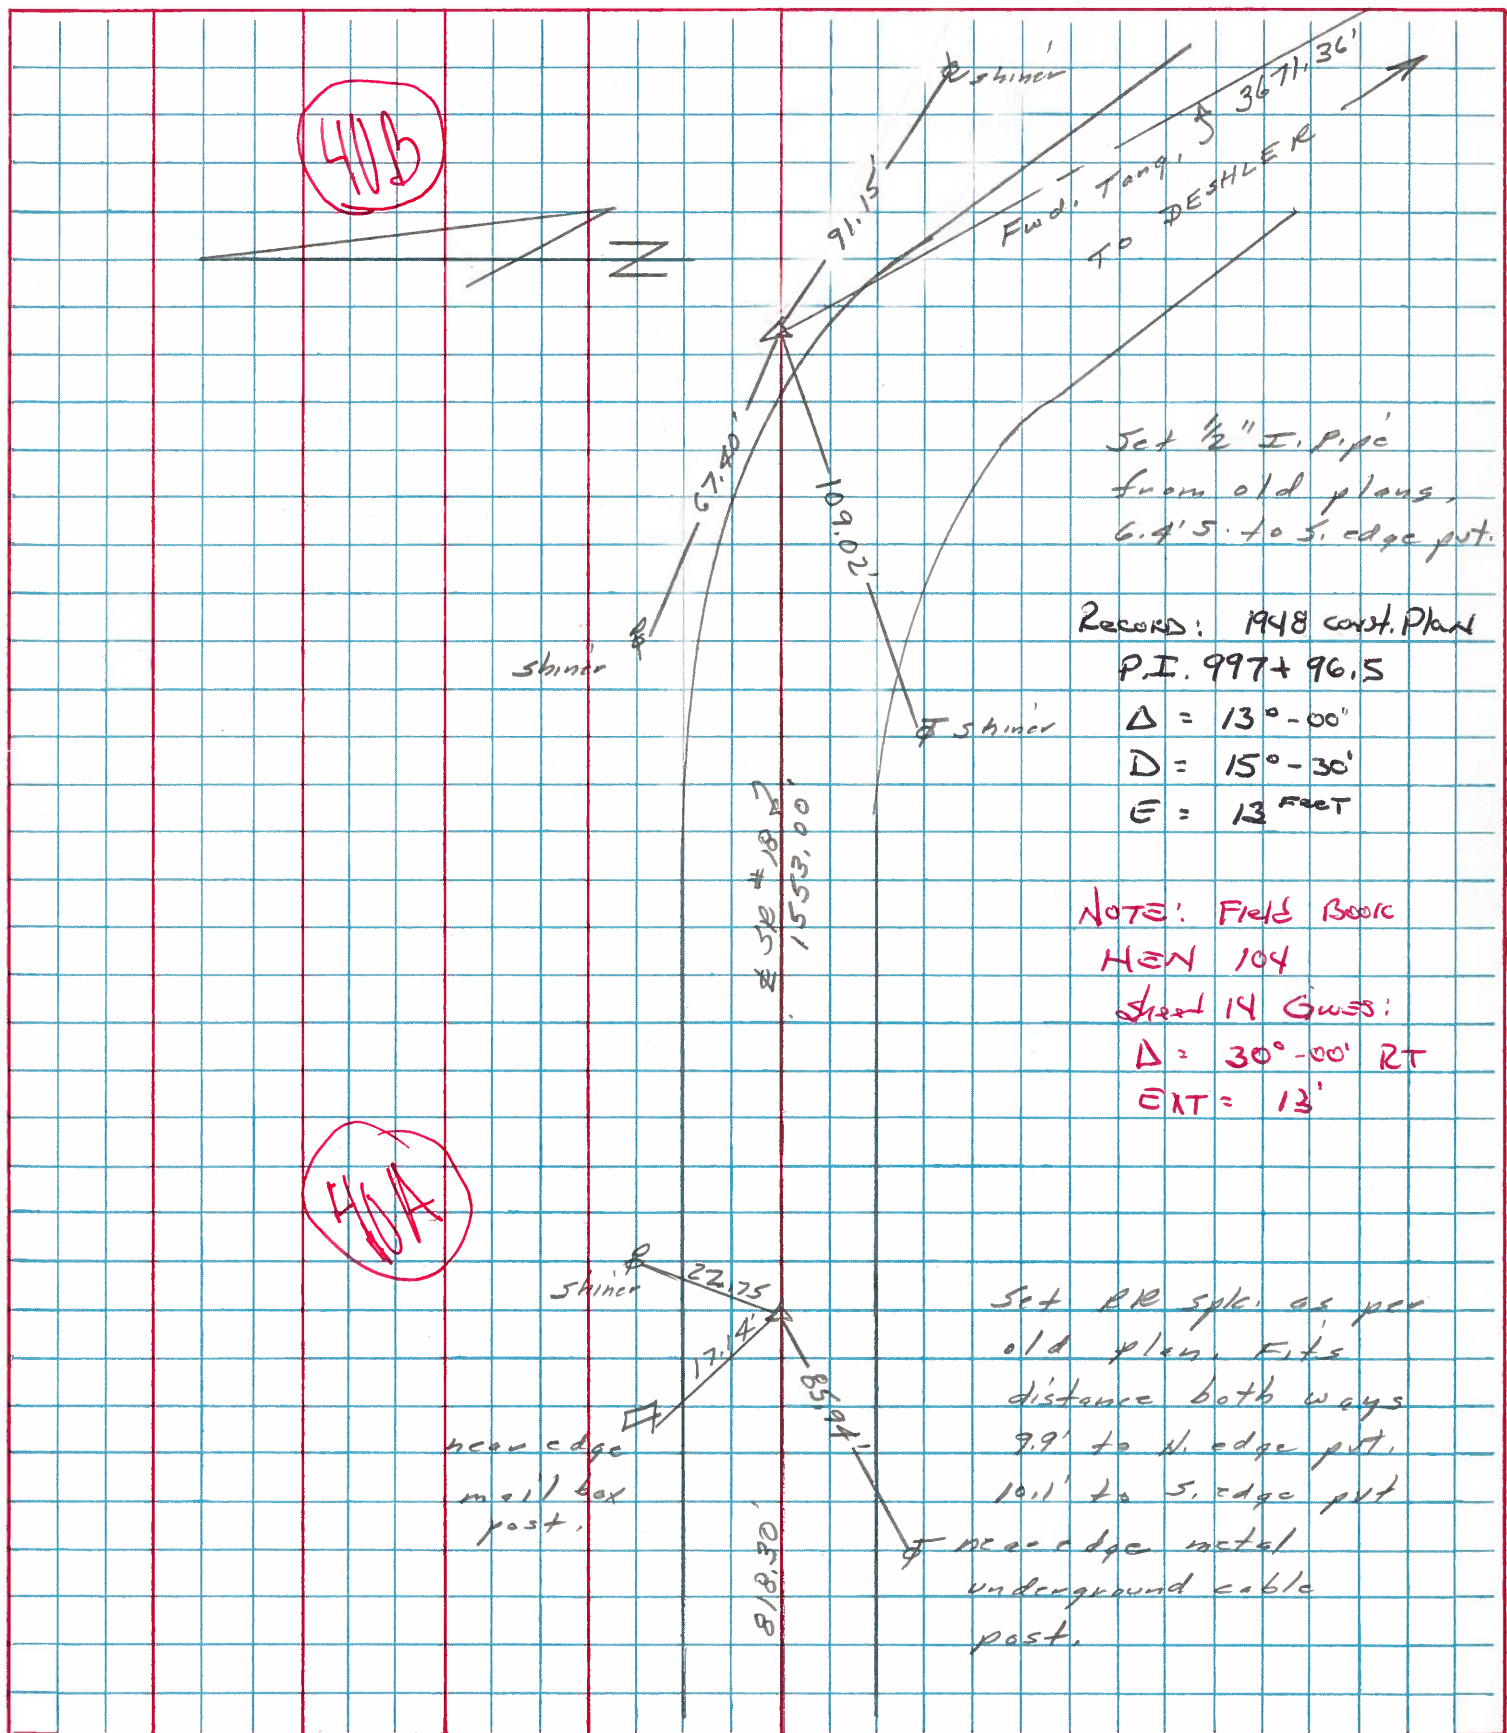 40B
N
shiner
91.15
3671.36'
Fwd. Tang.
TO DESHLER
67.40'
109.02'
shiner
shiner
Set 1/2" I. Pipe
from old plans.
6.4' S. to S. edge pvt.
RECORD: 1948 const. Plan
P.I. 997+96.5
Δ = 13°-00"
D = 15°-30'
E = 13 FEET
℄ SR #18
1553.00'
NOTE: Field Book
HEN 104
Sheet 14 Gives:
Δ = 30°-00' RT
EXT = 13'
40A
shiner
22.75
17.14'
85.94'
near edge
mail box
post.
818.30'
Set RR spk. as per
old plan. Fits
distance both ways
9.9' to N. edge pvt.
10.1' to S. edge pvt
near edge metal
underground cable
post.